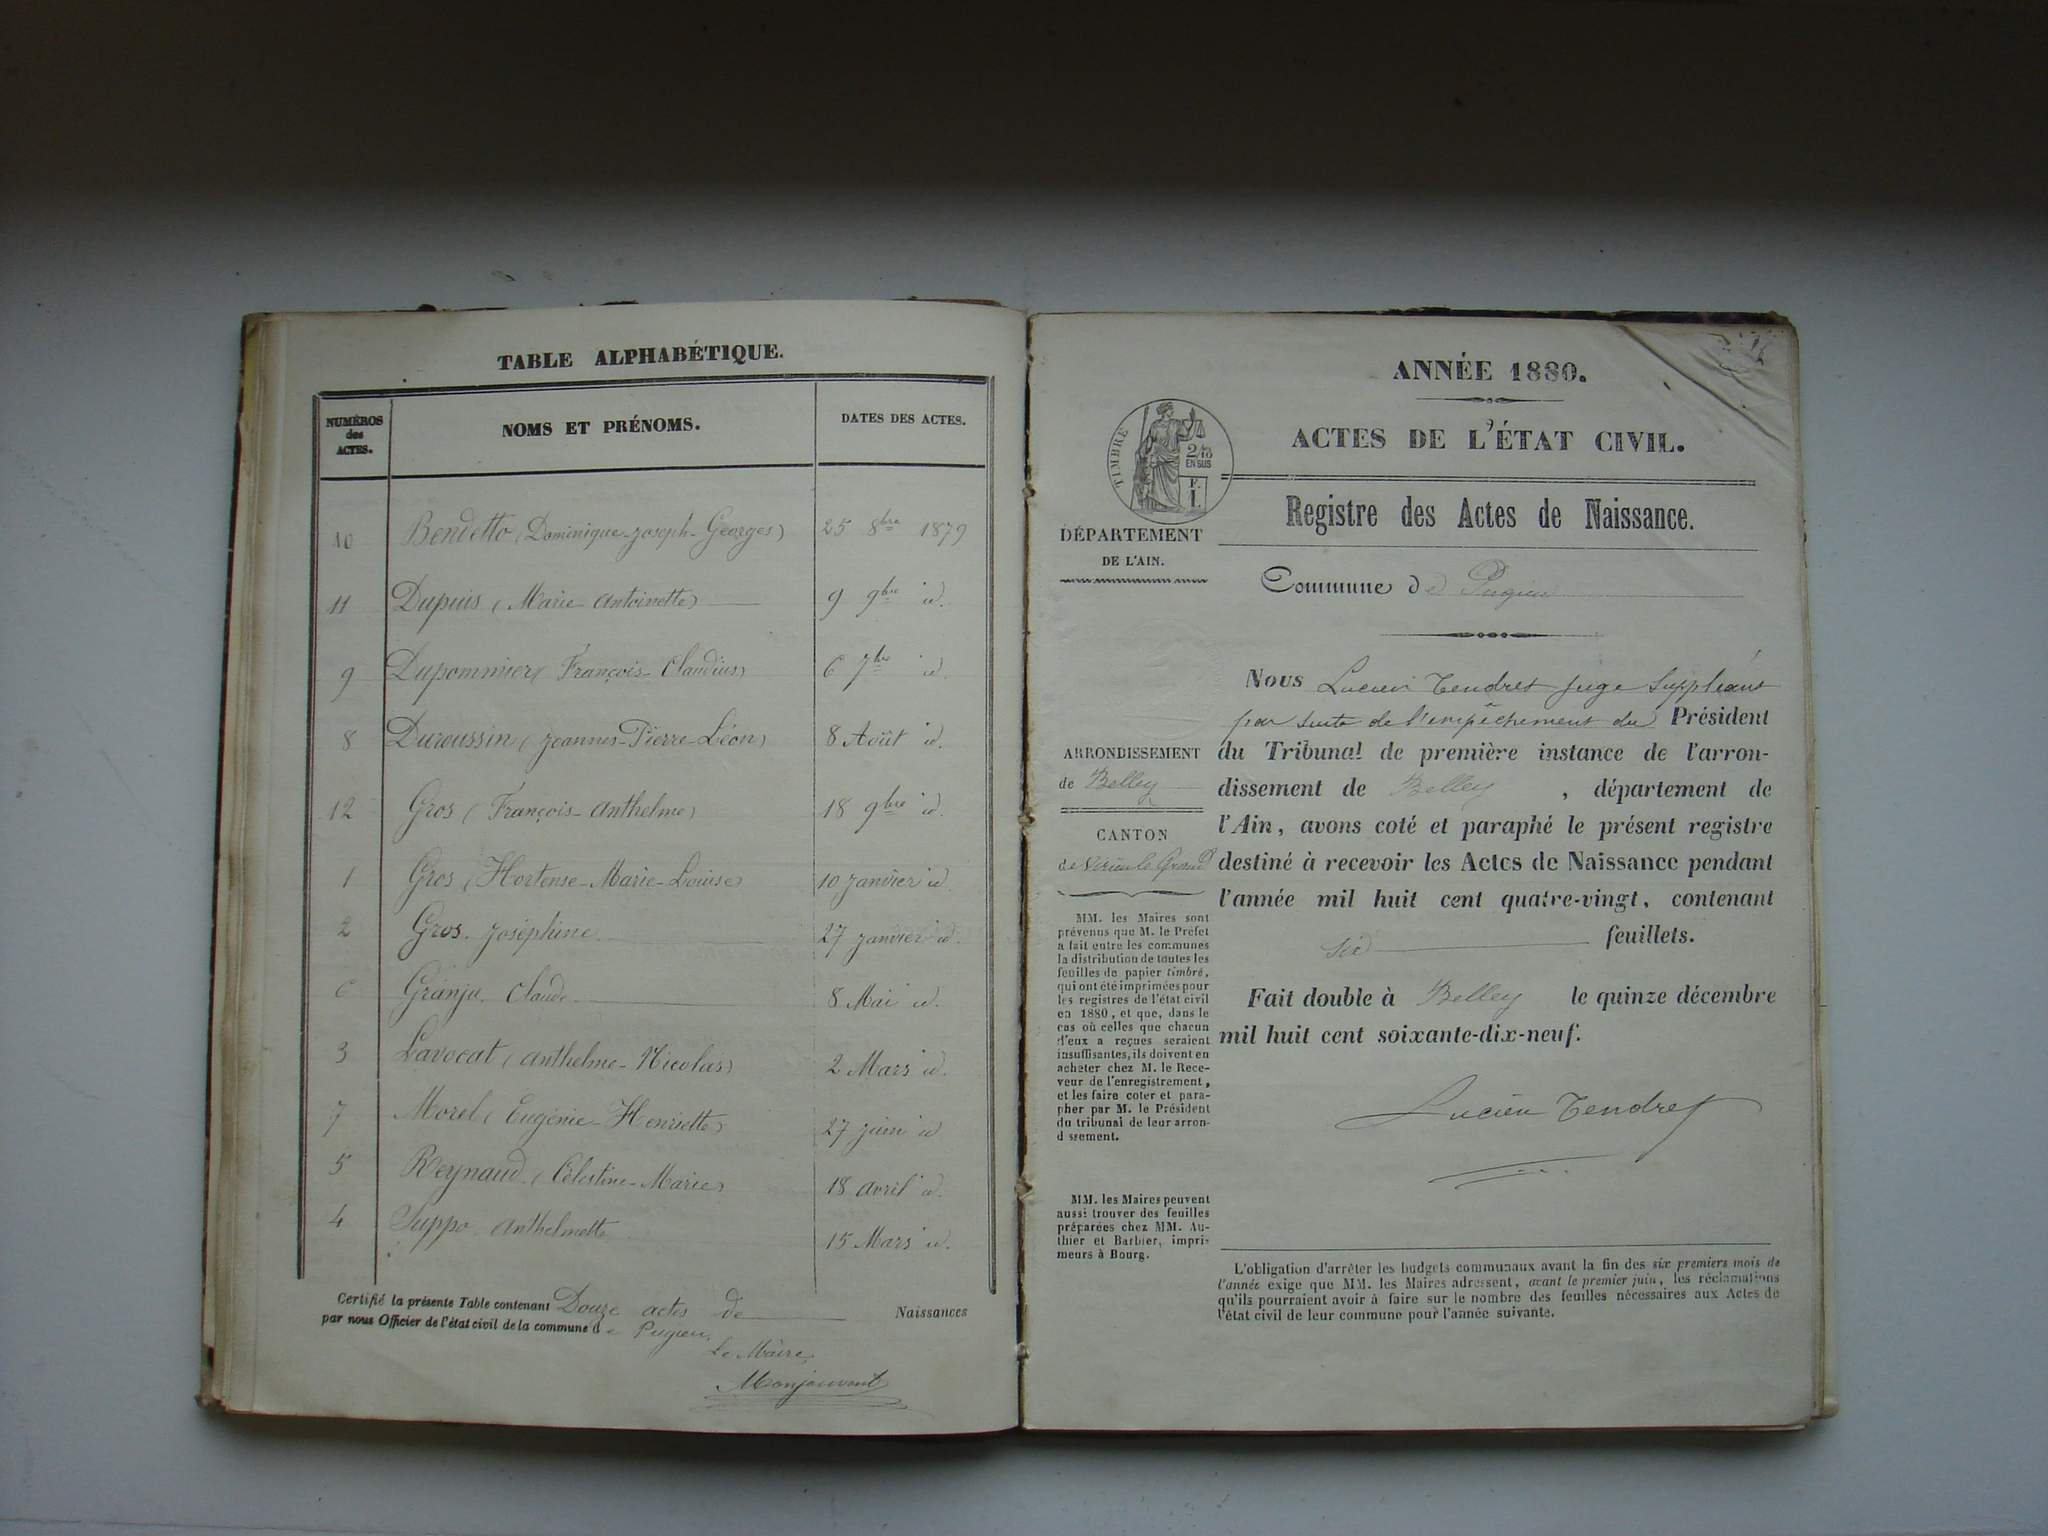 TABLE ALPHABÉTIQUE.
NUMÉROS des ACTES.
NOMS ET PRÉNOMS.
DATES DES ACTES.
10 Bendetto (Dominique-Joseph-Georges) 25 8bre 1879
11 Dupuis (Marie Antoinette) 9 9bre id.
9 Dupommier (François-Claudius) 6 7bre id.
8 Duroussin (Joannes-Pierre-Léon) 8 Août id.
12 Gros (François-Anthelme) 18 9bre id.
1 Gros (Hortense-Marie-Louise) 10 Janvier id.
2 Gros. Joséphine 27 Janvier id.
6 Granju. Claude 8 Mai id.
3 Lavocat (Anthelme-Nicolas) 2 Mars id.
7 Morel (Eugénie-Henriette) 27 juin id
5 Reynaud. (Célestine-Marie) 18 Avril id.
4 Suppo Anthelmette 15 Mars id.
Certifié la présente Table contenant Douze actes de Naissances
par nous Officier de l'état civil de la commune de Pugieu,
Le Maire,
Monjauvent
ANNÉE 1880.
ACTES DE L'ÉTAT CIVIL.
TIMBRE
2/10
EN SUS
F.
1.
Registre des Actes de Naissance.
DÉPARTEMENT
DE L'AIN.
Commune de Pugieu
Nous Lucien Tendret juge Suppléant
par suite de l'empêchement du Président
du Tribunal de première instance de l'arron-
dissement de Belley, département de
l'Ain, avons coté et paraphé le présent registre
destiné à recevoir les Actes de Naissance pendant
l'année mil huit cent quatre-vingt, contenant
six feuillets.
Fait double à Belley le quinze décembre
mil huit cent soixante-dix-neuf.
Lucien Tendret
ARRONDISSEMENT
de Belley
CANTON
de Virieu le Grand
MM. les Maires sont
prévenus que M. le Préfet
a fait entre les communes
la distribution de toutes les
feuilles de papier timbré,
qui ont été imprimées pour
les registres de l'état civil
en 1880, et que, dans le
cas où celles que chacun
d'eux a reçues seraient
insuffisantes, ils doivent en
acheter chez M. le Rece-
veur de l'enregistrement,
et les faire coter et para-
pher par M. le Président
du tribunal de leur arron-
dissement.
MM. les Maires peuvent
aussi trouver des feuilles
préparées chez MM. Au-
thier et Barbier, impri-
meurs à Bourg.
L'obligation d'arrêter les budgets communaux avant la fin des six premiers mois de
l'année exige que MM. les Maires adressent, avant le premier juin, les réclamations
qu'ils pourraient avoir à faire sur le nombre des feuilles nécessaires aux Actes de
l'état civil de leur commune pour l'année suivante.